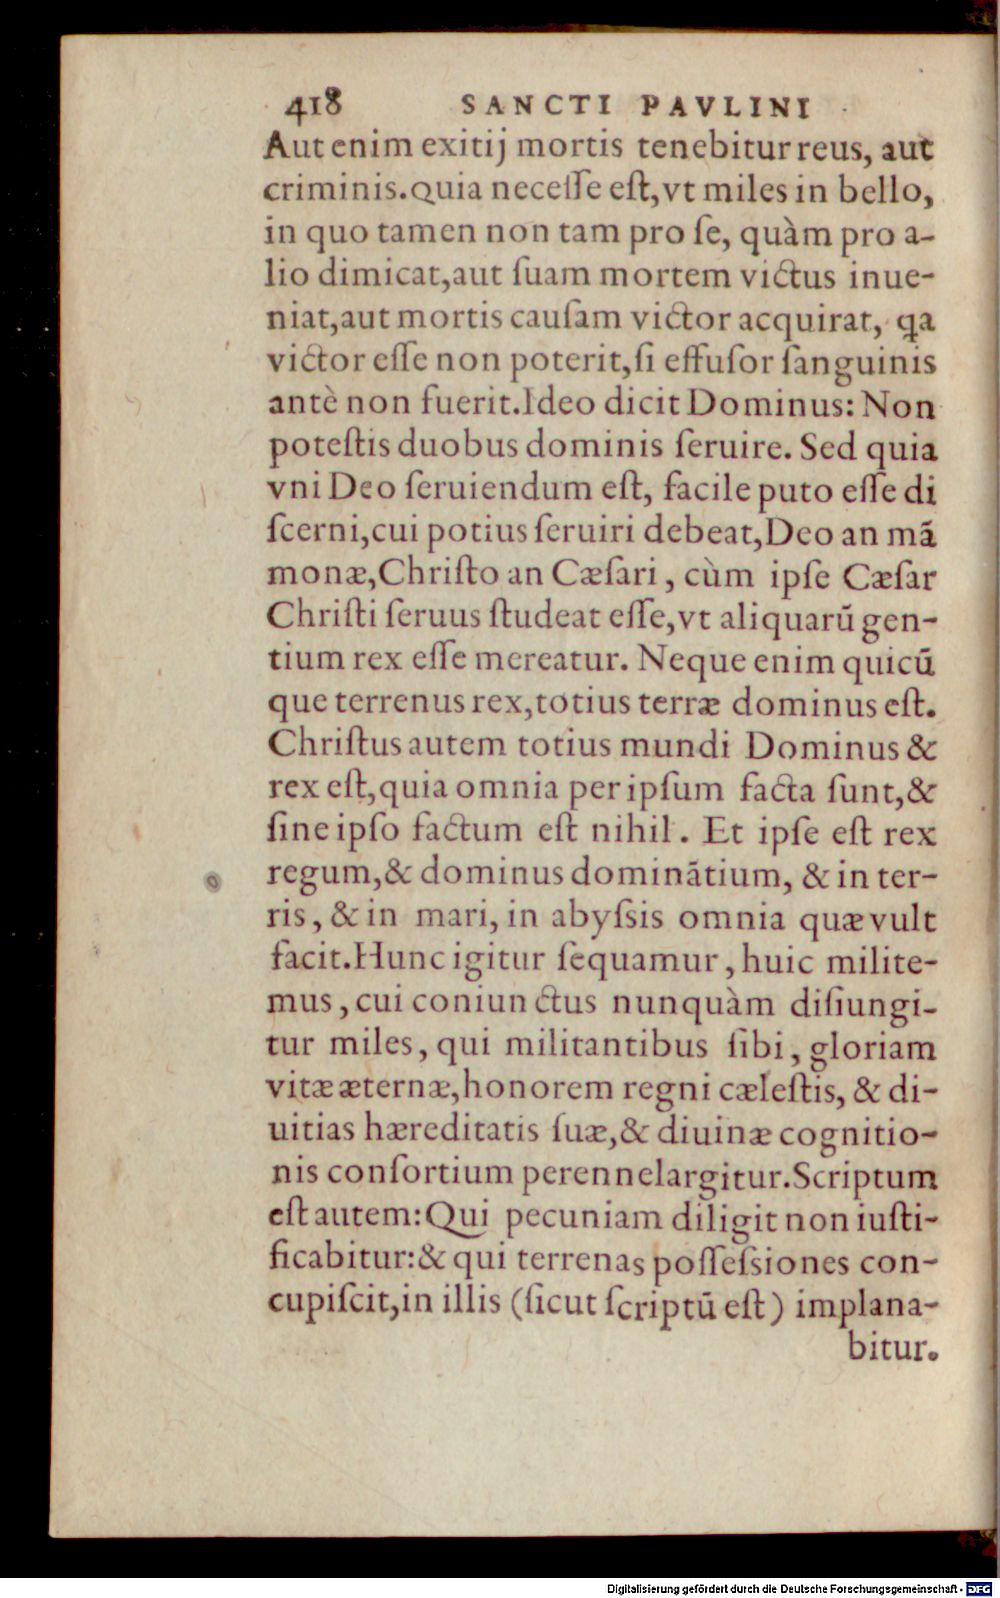 418 SANCTI PAVLINI
Aut enim exitij mortis tenebitur reus, aut
criminis. quia necesſe eſt, vt miles in bello,
in quo tamen non tam pro ſe, quàm pro a-
lio dimicat, aut ſuam mortem victus inue-
niat, aut mortis cauſam victor acquirat, qa
victor eſſe non poterit, ſi effuſor ſanguinis
antè non fuerit. Ideo dicit Dominus: Non
poteſtis duobus dominis ſeruire. Sed quia
vni Deo ſeruiendum eſt, facile puto eſſe di
ſcerni, cui potius ſeruiri debeat, Deo an mã
monæ, Chriſto an Cæſari, cùm ipſe Cæſar
Chriſti ſeruus ſtudeat eſſe, vt aliquarũ gen-
tium rex eſſe mereatur. Neque enim quicũ
que terrenus rex, totius terræ dominus eſt.
Chriſtus autem totius mundi Dominus &
rex eſt, quia omnia per ipſum facta ſunt, &
ſine ipſo factum eſt nihil. Et ipſe eſt rex
regum, & dominus dominãtium, & in ter-
ris, & in mari, in abyſsis omnia quæ vult
facit. Hunc igitur ſequamur, huic milite-
mus, cui coniunctus nunquàm diſiungi-
tur miles, qui militantibus ſibi, gloriam
vitæ æternæ, honorem regni cæleſtis, & di-
uitias hæreditatis ſuæ, & diuinæ cognitio-
nis conſortium perenne largitur. Scriptum
eſt autem: Qui pecuniam diligit non iuſti-
ficabitur: & qui terrenas poſſeſsiones con-
cupiſcit, in illis (ſicut ſcriptũ eſt) implana-
bitur.
Digitalisierung gefördert durch die Deutsche Forschungsgemeinschaft - DFG